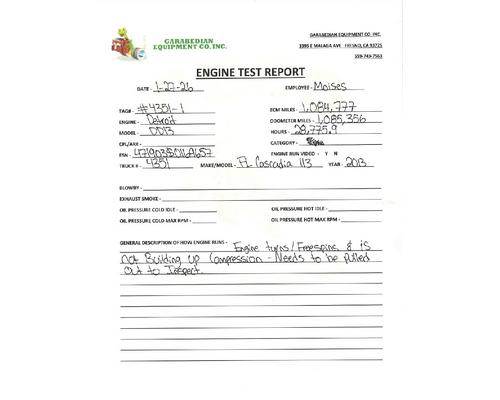 GARABEDIAN
EQUIPMENT CO, INC.
GARABEDIAN EQUIPMENT CO. INC.
1395 E MALAGA AVE FRESNO, CA 93725
559-749-7563
ENGINE TEST REPORT
DATE - 1-27-26 EMPLOYEE - Moises
TAG# - #4351-1 ECM MILES - 1,084,777
ENGINE - Detroit ODOMETER MILES - 1,085,356
MODEL - DD13 HOURS - 28,775.9
CPL/AR# - CATEGORY -
ESN - ENGINE RUN VIDEO - Y N
TRUCK # - 4351 MAKE/MODEL - FL Cascadia 113 YEAR - 2013
BLOWBY -
EXHAUST SMOKE -
OIL PRESSURE COLD IDLE - OIL PRESSURE HOT IDLE -
OIL PRESSURE COLD MAX RPM - OIL PRESSURE HOT MAX RPM -
GENERAL DESCRIPTION OF HOW ENGINE RUNS - Engine turns/Freespins & is
not Building up Compression - Needs to be pulled
out to Inspect.